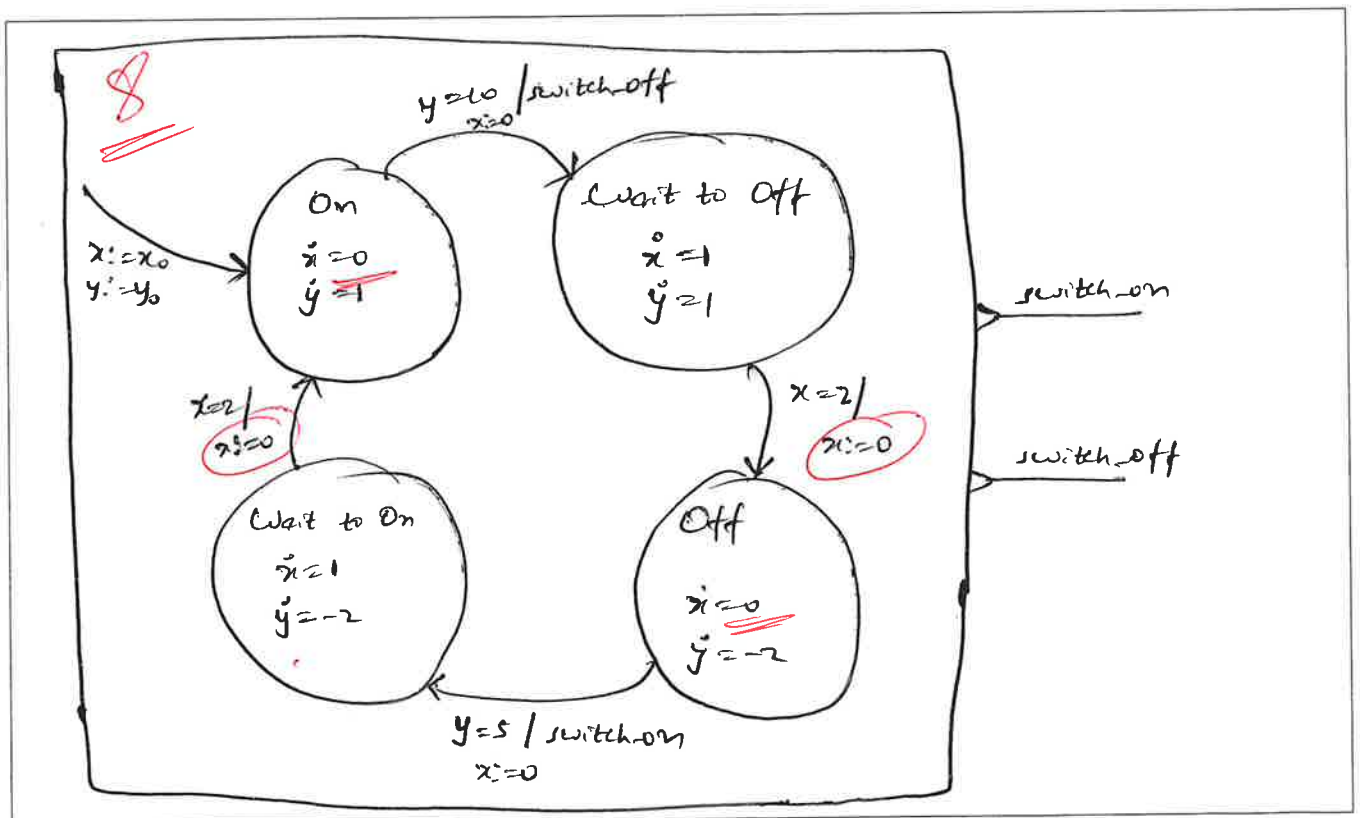 8
y=10 / switch_off
x:=0
x:=x₀
y:=y₀
On
ẋ=0
ẏ=1
Wait to Off
ẋ=1
ẏ=1
switch_on
x=2/
x:=0
x=2/
x:=0
switch_off
Wait to On
ẋ=1
ẏ=-2
Off
ẋ=0
ẏ=-2
y=5 / switch_on
x:=0